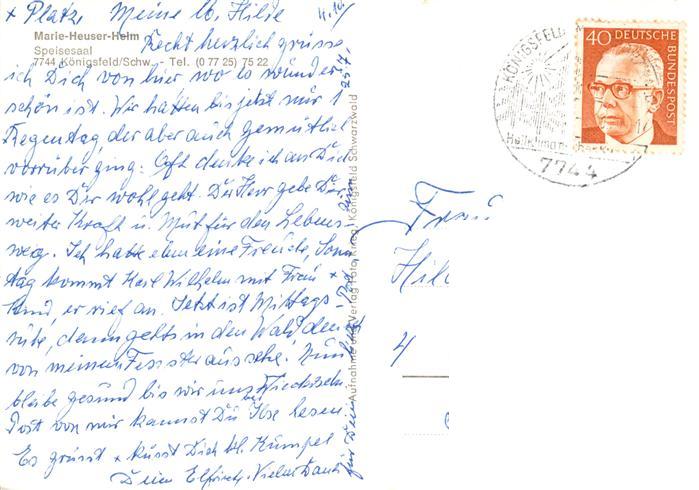 + Platz. Meine lb. Hilde
Marie-Heuser-Heim
Speisesaal
7744 Königsfeld/Schw. Tel. (0 77 25) 75 22
Recht herzlich grüsse
ich Dich von hier wo es wunder
schön ist. Wir hatten bis jetzt nur 1
Regentag, der aber auch gemütlich
vorrüber ging. Oft denke ich an Dich
wie es Dir wohl geht. Der Herr gebe Dir
weiter Kraft u. Mut für den Lebens-
weg. Ich hatte eben eine Freude, Sonn
tag kommt Karl Wilhelm mit Frau +
Kind, er rief an. Jetzt ist Mittags-
ruhe, dann gehts in den Wald den ich
von meinem Fenster aus sehe. Nun
bleibe gesund bis wir uns Wiedersehn
Post von mir kannst Du bei Ilse lesen
Es grüsst + küsst Dich
Deine Vielen Dank
für
Aufnahme und Verlag Foto Königsfeld Schwarzwald
KÖNIGSFELD
7744
40 DEUTSCHE
BUNDESPOST
Frau
Hil
4